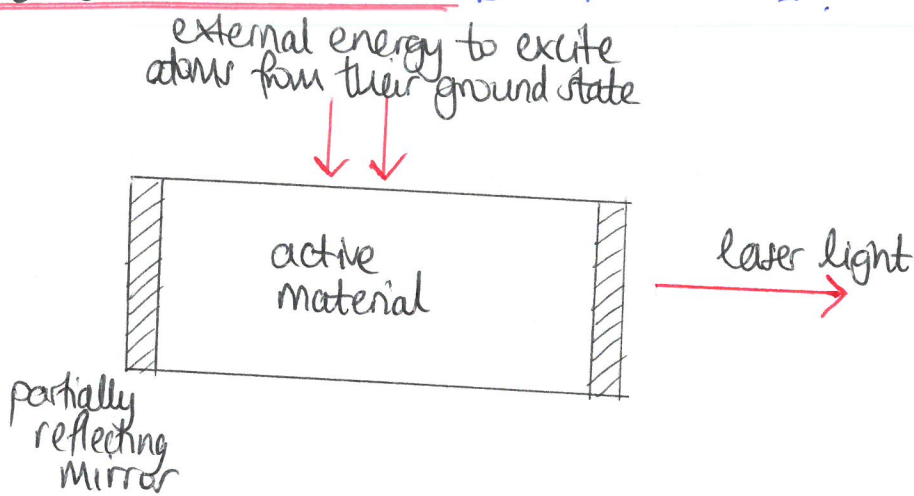 external energy to excite
atoms from their ground state
active
material
laser light
partially
reflecting
mirror